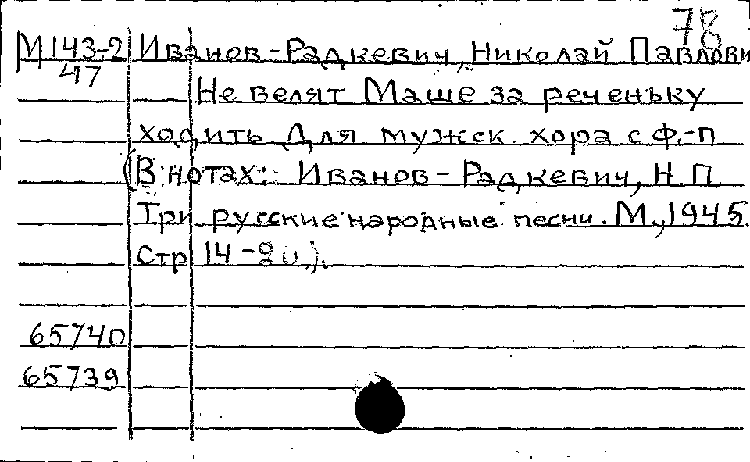 78
М143-2 Иванов-Радкевич, Николай Павлови
47
Не велят Маше за реченьку
ходить Для мужск. хора с ф.-п
(В нотах: Иванов-Радкевич, Н.П
Три русские народные песни. М., 1945.
Стр 14-20.).
65740
65739